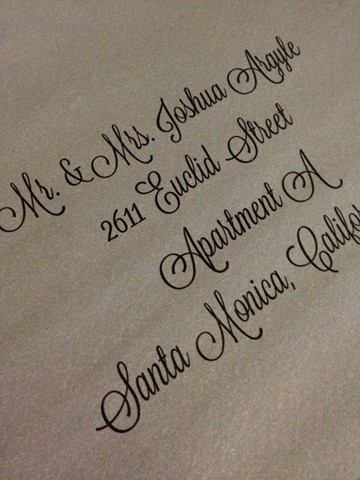 Mr. & Mrs. Joshua Argyle
2611 Euclid Street
Apartment A
Santa Monica, Califor